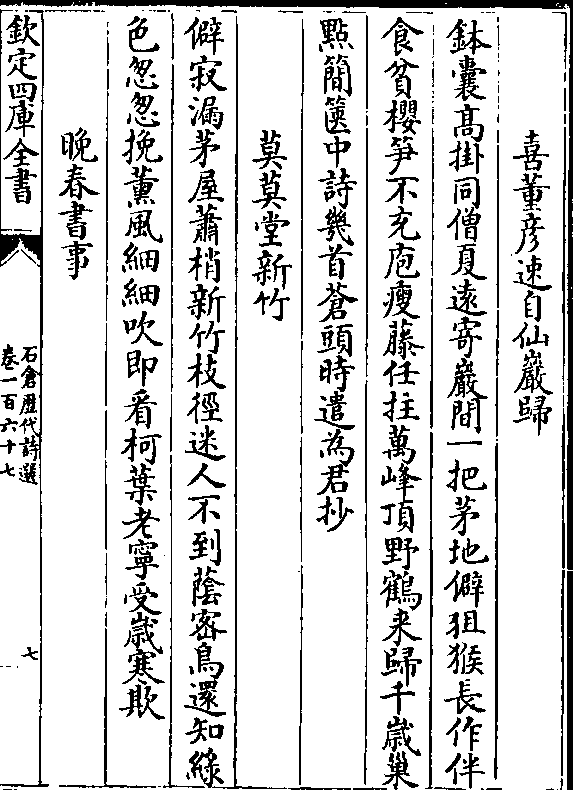 喜董彦速自仙巖歸
鉢囊髙掛同僧夏逺寄巖間一把茅地僻狙猴長作伴
食貧櫻笋不充庖瘦藤任拄萬峰頂野鶴来歸千歲巢
點簡篋中詩幾首蒼頭時遣為君抄
莫莫堂新竹
僻寂漏茅屋蕭梢新竹枝徑迷人不到蔭宻鳥還知緑
色忽忽挽薫風細細吹即看柯葉老寧受歲寒欺
晚春書事
欽定四庫全書
石倉歴代詩選
卷一百六十七
七